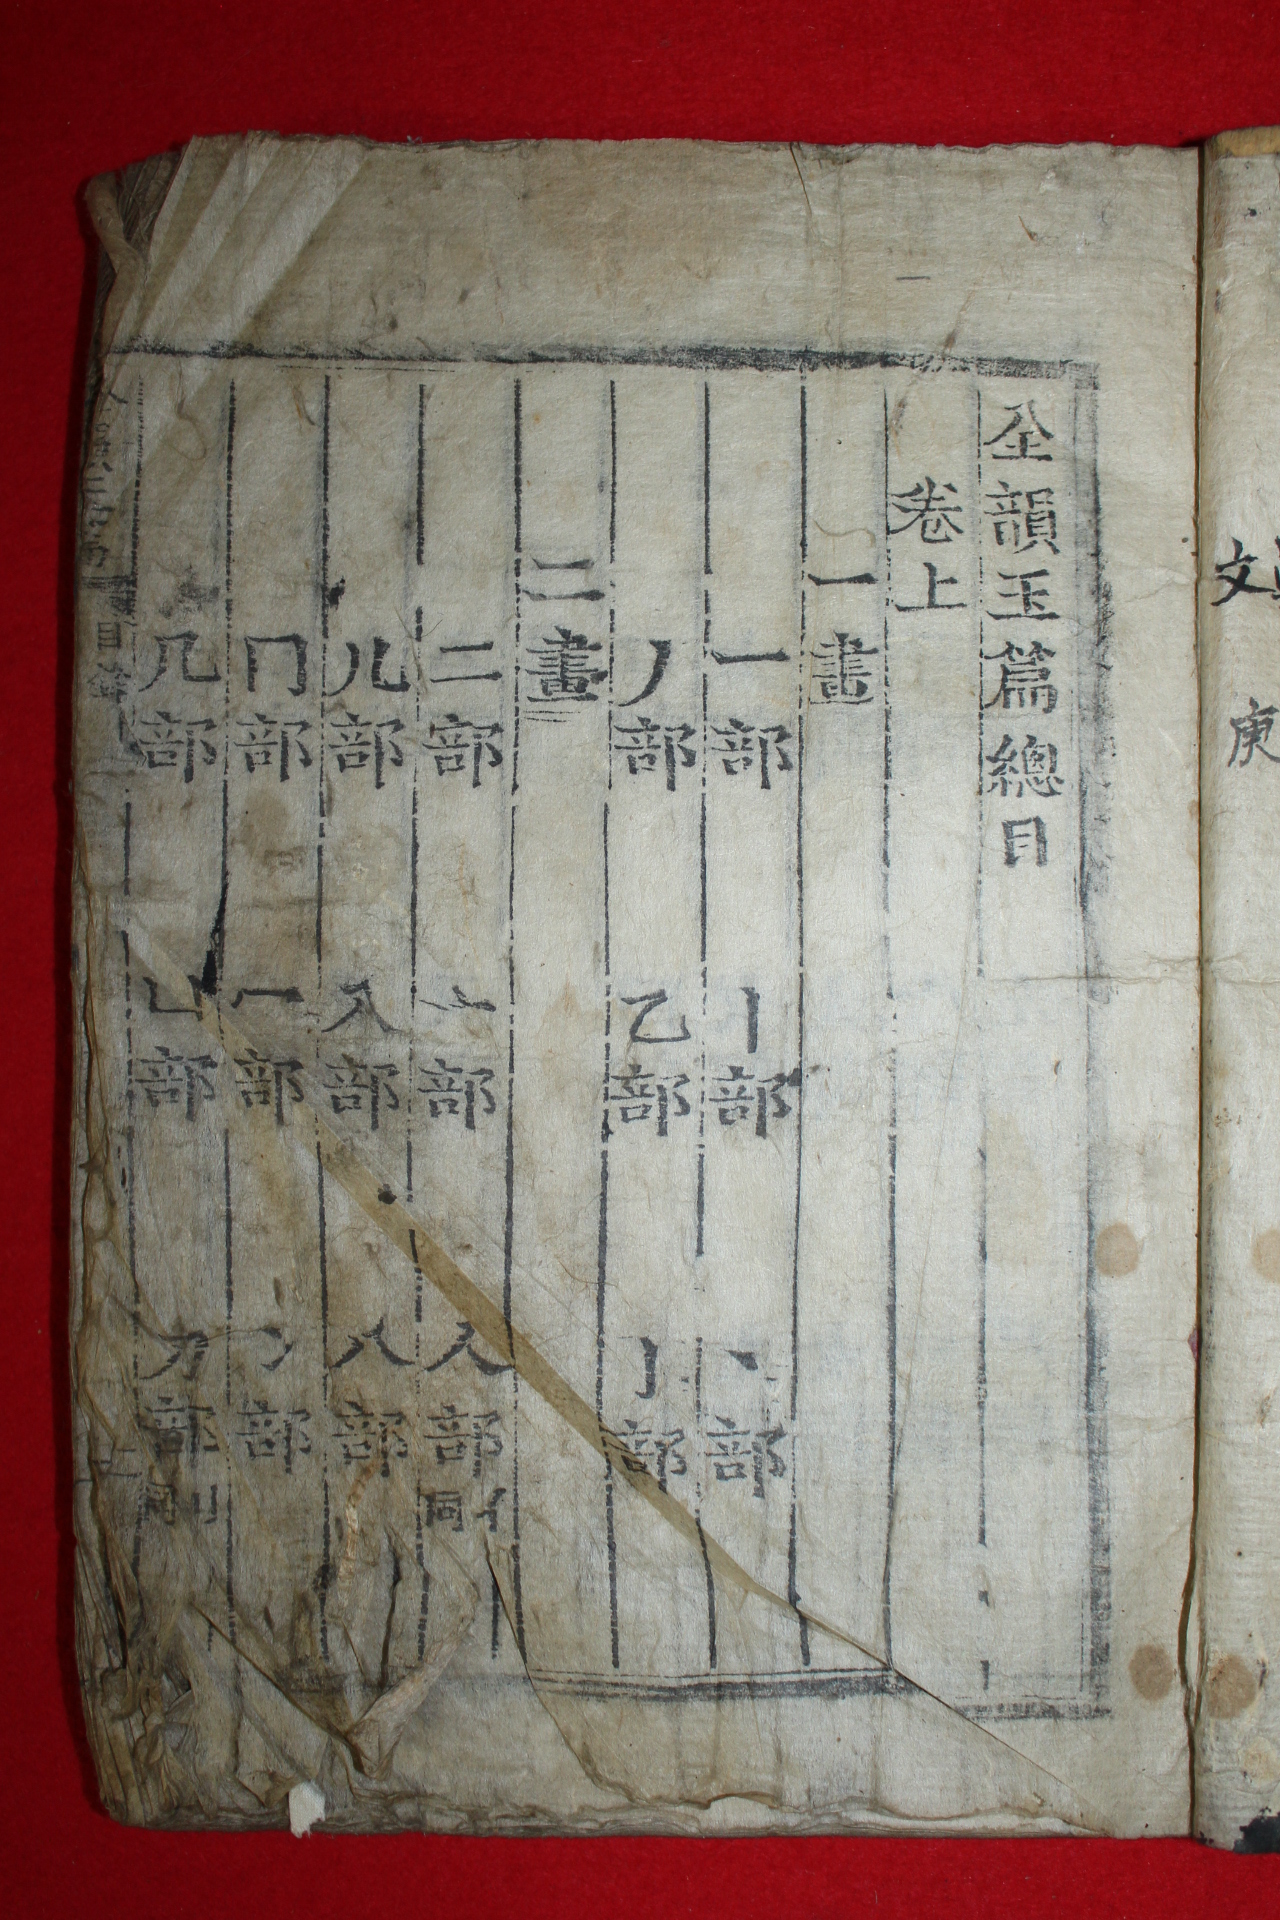 全韻玉篇總目
卷上
一畫
一部 丨部 丶部
丿部 乙部 亅部
二畫
二部 亠部 人部 亻同
儿部 入部 八部
冂部 冖部 冫部
几部 凵部 刀部 刂同
目錄
文
庚